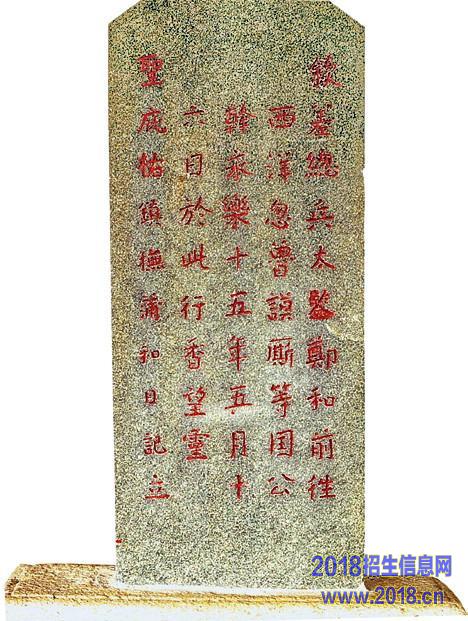 欽差總兵太監鄭和前往
西洋忽魯謨厮等国公
幹永樂十五年五月十
六日於此行香望靈
聖庇佑鎮撫蒲和日記立
2018招生信息网
www.2018.cn